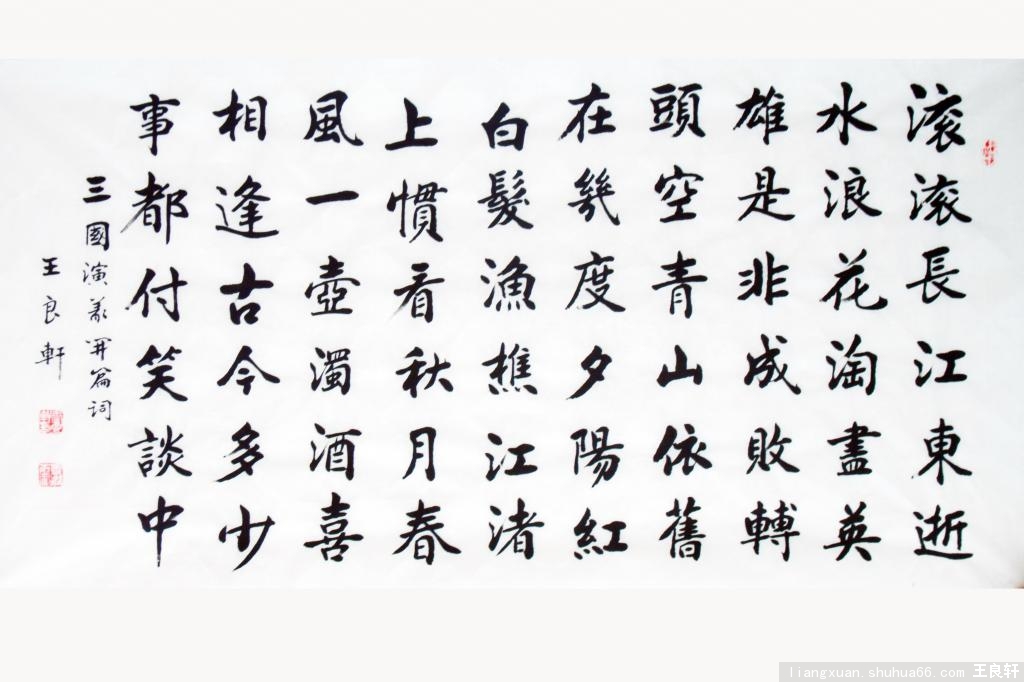 滚滚長江東逝
水浪花淘盡英
雄是非成敗轉
頭空青山依舊
在幾度夕陽紅
白髮漁樵江渚
上慣看秋月春
風一壺濁酒喜
相逢古今多少
事都付笑談中
三國演義開篇詞
王良軒
liangxuan.shuhua66.com 王良轩